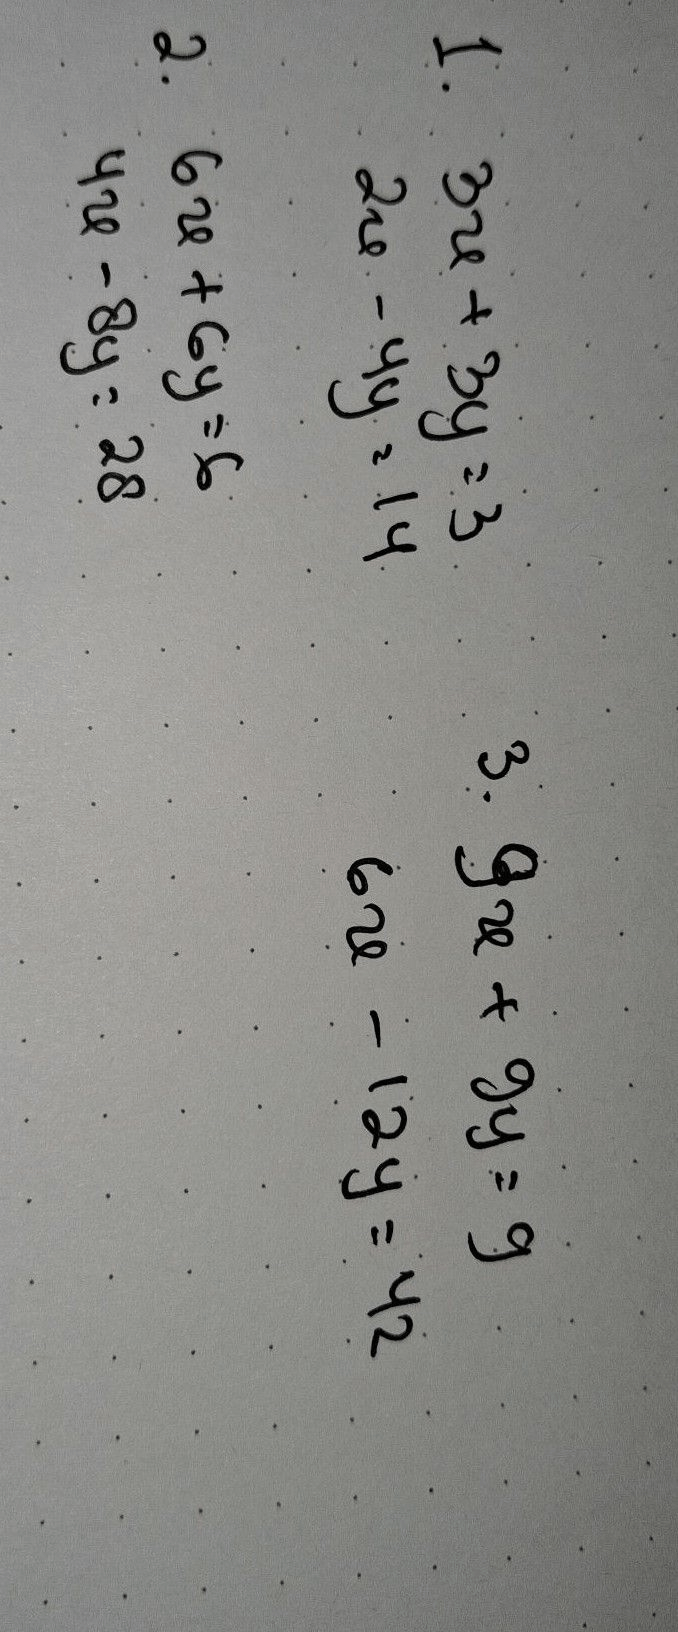 1. 3x + 3y = 3
2x - 4y = 14
2. 6x + 6y = 6
4x - 8y = 28
3. 9x + 9y = 9
6x - 12y = 42